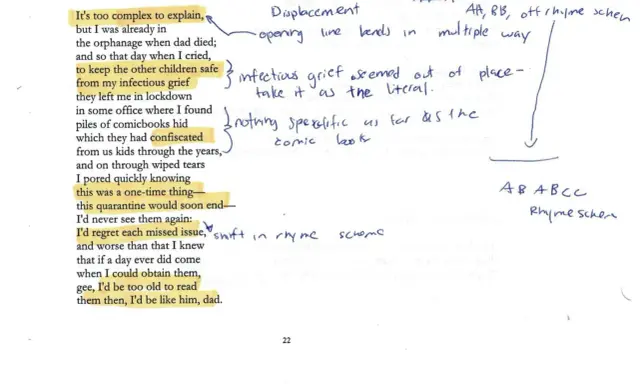 Displacement
AA, BB, off rhyme schem
It's too complex to explain,
opening line bends in multiple way
but I was already in
the orphanage when dad died;
and so that day when I cried,
to keep the other children safe
infectious grief seemed out of place-
from my infectious grief
take it as the literal.
they left me in lockdown
in some office where I found
piles of comicbooks hid
nothing as far as the
which they had confiscated
comic books
from us kids through the years,
and on through wiped tears
I pored quickly knowing
this was a one-time thing—
A B A B C C
this quarantine would soon end—
Rhyme schem
I'd never see them again:
I'd regret each missed issue,
shift in rhyme scheme
and worse than that I knew
that if a day ever did come
when I could obtain them,
gee, I'd be too old to read
them then, I'd be like him, dad.
22